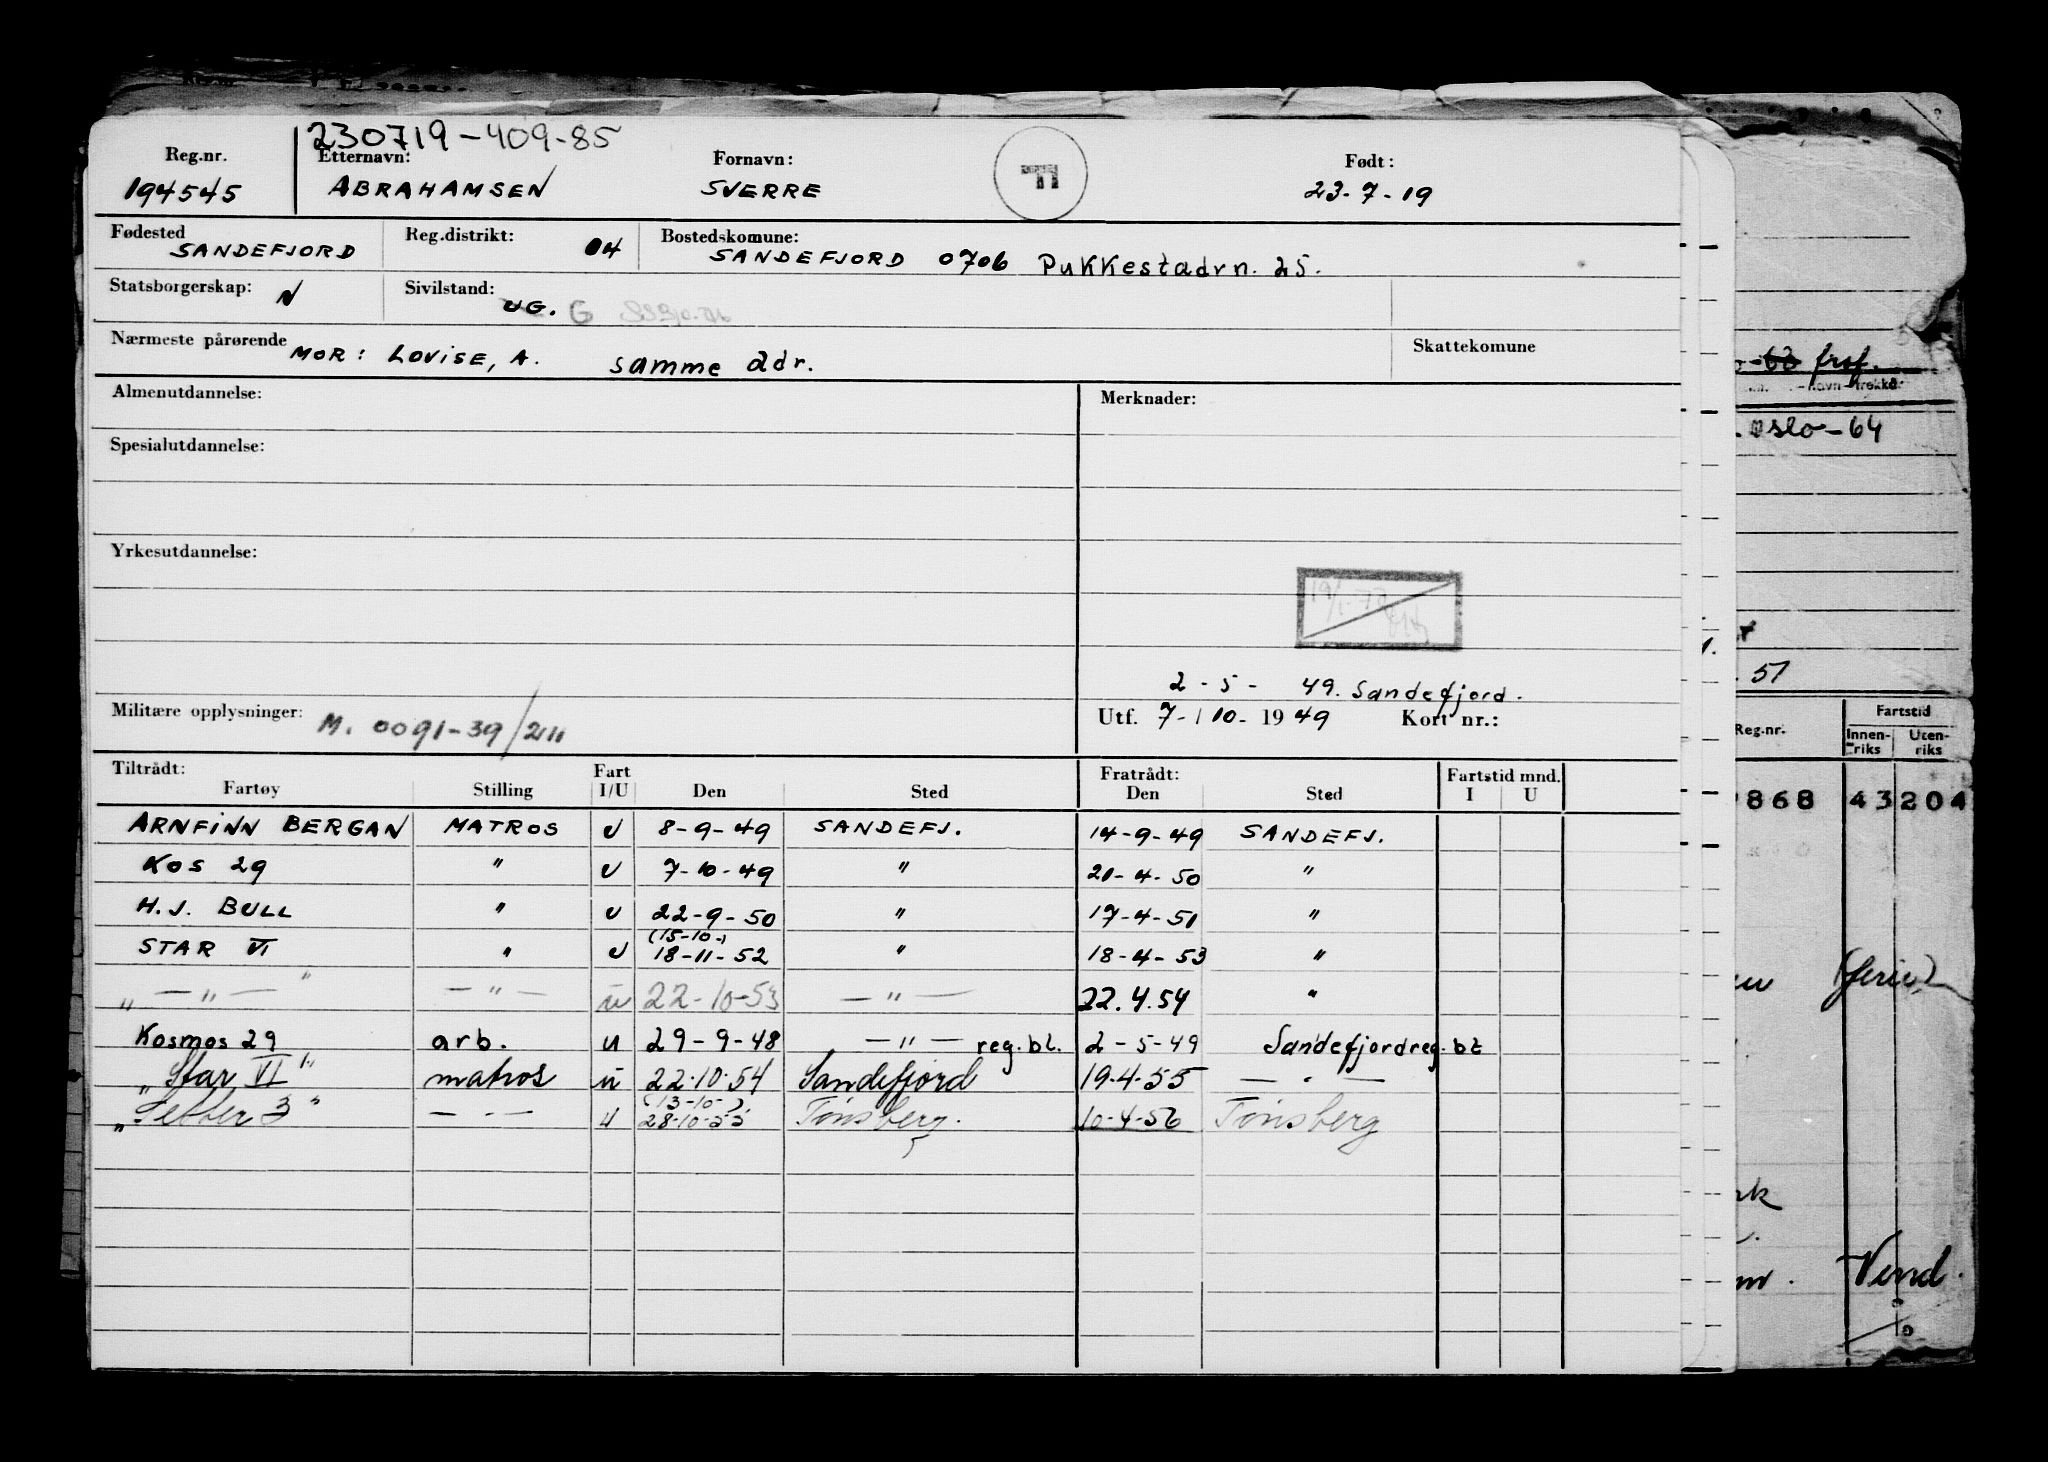 230719-409-85
Reg.nr. Etternavn: Fornavn: F Født:
194545 ABRAHAMSEN SVERRE 23-7-19
Fødested Reg.distrikt: Bostedskomune:
SANDEFJORD 04 SANDEFJORD 0706 Pukkestadvn. 25.
Statsborgerskap: N Sivilstand: UG. G
Nærmeste pårørende MOR: LOVISE, A. samme adr. Skattekomune
Almenutdannelse: Merknader:
Spesialutdannelse:
Yrkesutdannelse:
2-5- 49. Sandefjord.
Militære opplysninger: M. 0091-39/211 Utf. 7-10-1949 Kort nr.:
Tiltrådt: Fart Fratrådt: Fartstid mnd.
Fartøy Stilling I/U Den Sted Den Sted I U
ARNFINN BERGAN MATROS U 8-9-49 SANDEFJ. 14-9-49 SANDEFJ.
KOS 29 " U 7-10-49 " 20-4-50 "
H.J. BULL " U 22-9-50 " 17-4-51 "
(15-10-)
STAR VI " U 18-11-52 " 18-4-53 "
" — " — " — " — u 22-10-53 — " — 22.4.54 "
Kosmos 29 arb. u 29-9-48 — " — reg.bl. 2-5-49 Sandefjord reg.bl
"Star VI" matros u 22.10.54 Sandefjord 19.4.55 — " —
(13-10-)
"Setter 3" — " — u 28-10-55 Tønsberg. 10-4-56 Tønsberg
-63 frsf.
-navn-trekk
Oslo-64
51
Reg.nr. Fartstid
Innen-riks Uten-riks
868 43 204
(ferie)
Vend.